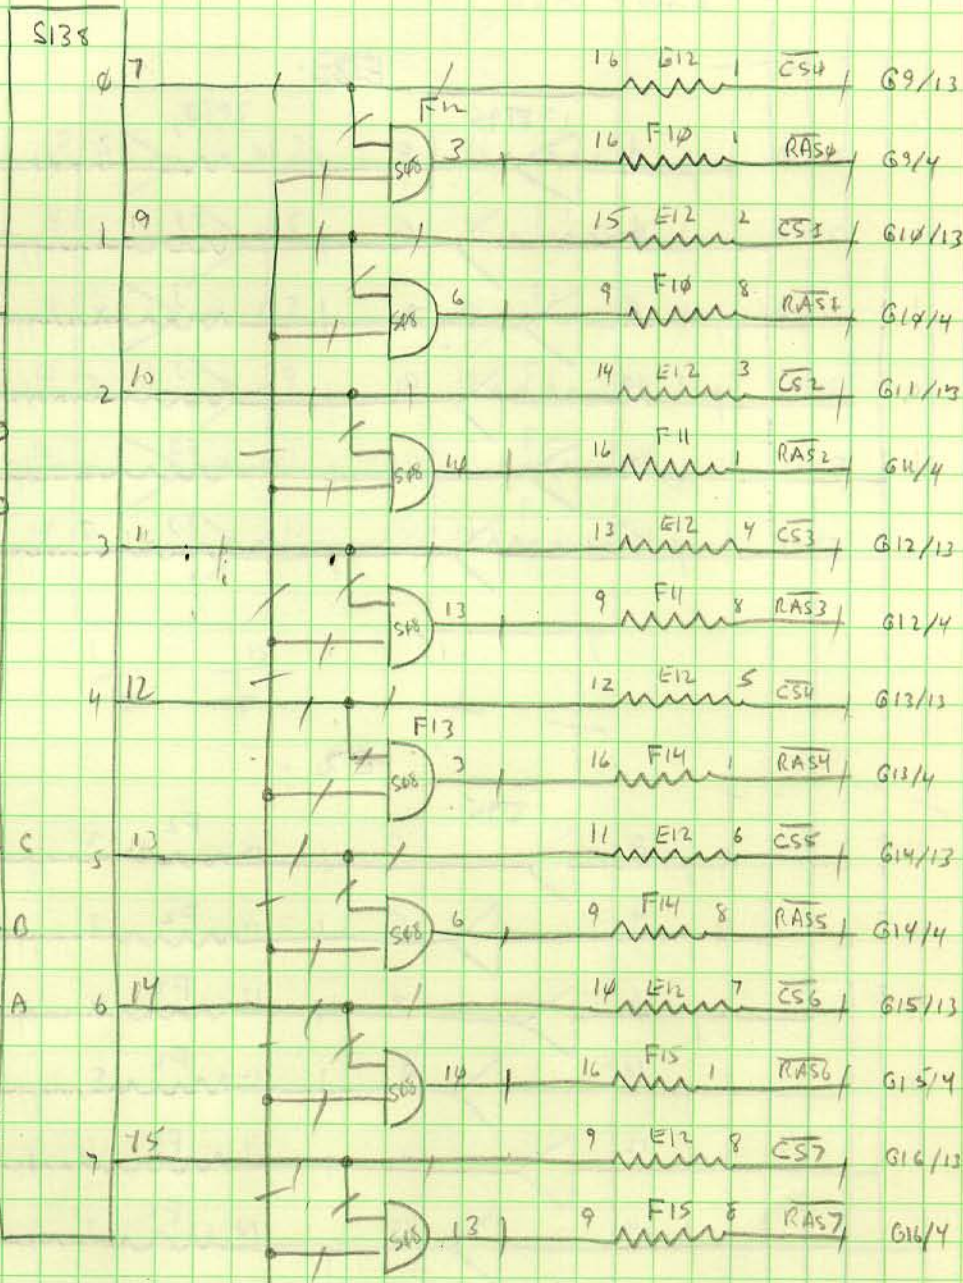 S138
0 7 16 E12 1 CS0 G9/13
F12
S08 3 16 F10 1 RAS0 G9/4
1 9 15 E12 2 CS1 G10/13
S08 6 9 F10 8 RAS1 G10/4
2 10 14 E12 3 CS2 G11/13
S08 10 16 F11 1 RAS2 G11/4
3 11 13 E12 4 CS3 G12/13
S08 13 9 F11 8 RAS3 G12/4
4 12 12 E12 5 CS4 G13/13
F13
S08 3 16 F14 1 RAS4 G13/4
C 5 13 11 E12 6 CS5 G14/13
B S08 6 9 F14 8 RAS5 G14/4
A 6 14 10 E12 7 CS6 G15/13
S08 10 16 F15 1 RAS6 G15/4
7 15 9 E12 8 CS7 G16/13
S08 13 9 F15 8 RAS7 G16/4